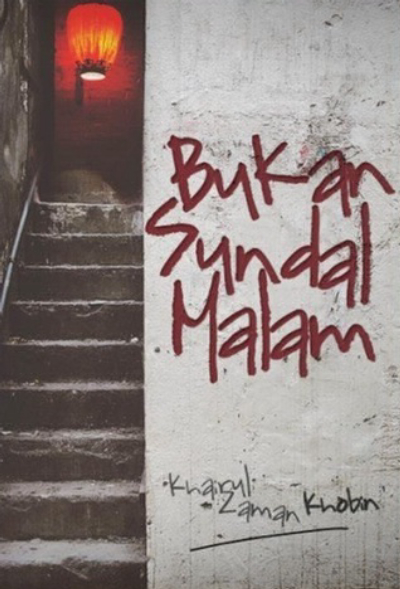 Bukan
Sundal
Malam
Khairul
Zaman Khobin